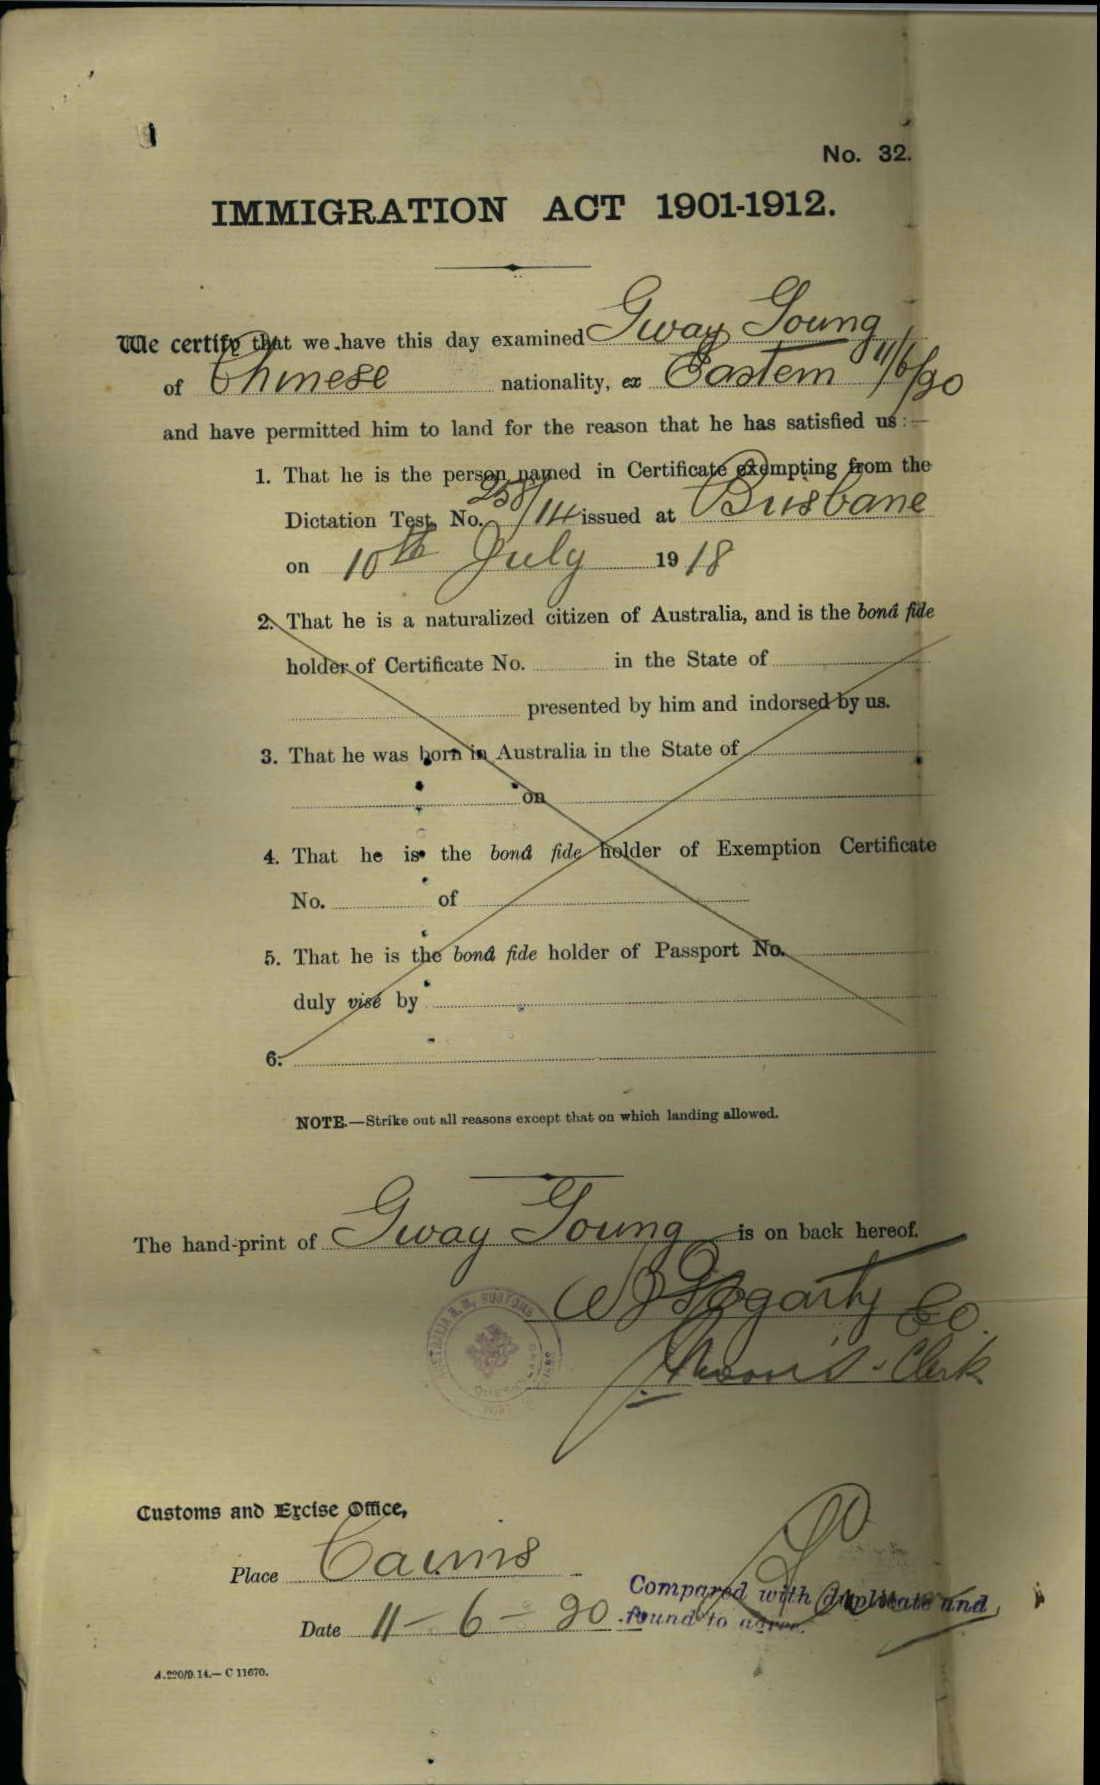 No. 32.
IMMIGRATION ACT 1901-1912.
We certify that we have this day examined Gway Young
of Chinese nationality, ex Eastern 11/6/20
and have permitted him to land for the reason that he has satisfied us:—
1. That he is the person named in Certificate exempting from the
Dictation Test, No. 258/14 issued at Brisbane
on 10th July 1918
2. That he is a naturalized citizen of Australia, and is the bonâ fide
holder of Certificate No. in the State of
presented by him and indorsed by us.
3. That he was born in Australia in the State of
on
4. That he is the bonâ fide holder of Exemption Certificate
No. of
5. That he is the bonâ fide holder of Passport No.
duly visé by
6.
NOTE.—Strike out all reasons except that on which landing allowed.
The hand-print of Gway Young is on back hereof.
Fogarty Co.
Clerk
Customs and Excise Office,
Place Cairns
Date 11-6-20
Compared with duplicate and
found to agree.
A.220/9.14.—C 11670.